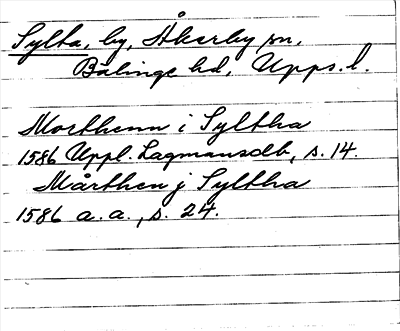 Sylta, by, Åkerby sn.
Bälinge hd, Upps. l.
Morthenn i Syltha
1586 Uppl. Lagmansdb, s. 14.
Mårthen j Syltha
1586 a. a., s. 24.